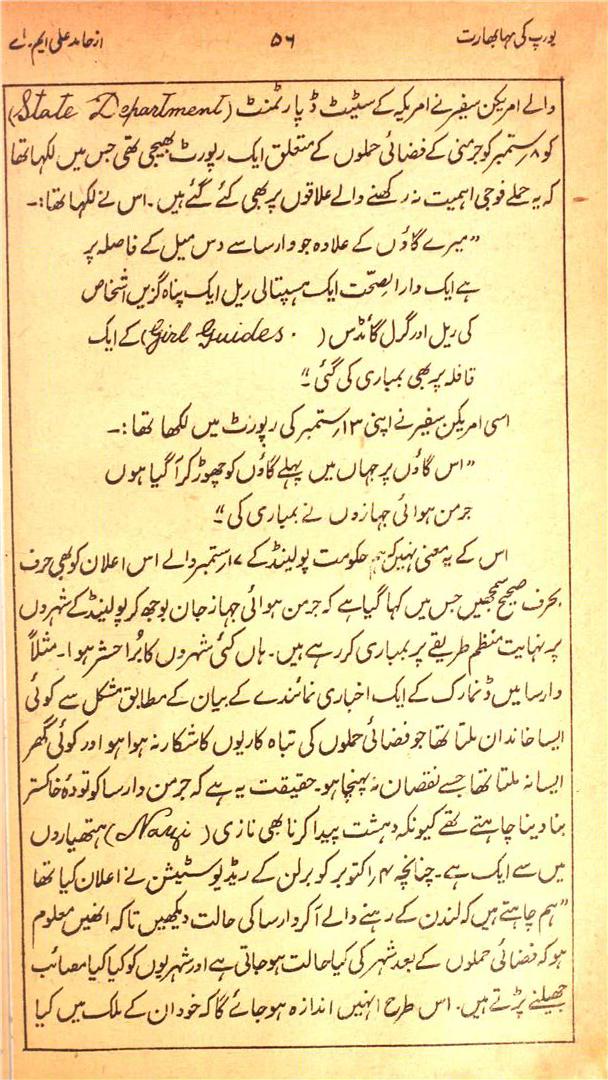 یورپ کی مہابھارت ۵۶ از حامد علی ایم۔ اے
والے امریکن سفیر نے امریکہ کے سٹیٹ ڈپارٹمنٹ (State Department)
کو ۸ ستمبر کو جرمنی کے فضائی حملوں کے متعلق ایک رپورٹ بھیجی تھی جس میں لکھا تھا
کہ یہ حملے فوجی اہمیت نہ رکھنے والے علاقوں پر بھی کئے گئے ہیں۔ اس نے لکھا تھا:۔
”میرے گاؤں کے علاوہ جو وارسا سے دس میل کے فاصلہ پر
ہے ایک دارالصحّت ایک ہسپتالی ریل ایک پناہ گزیں اشخاص
کی ریل اور گرل گائڈس (Girl Guides.) کے ایک
قافلہ پر بھی بمباری کی گئی۔“
اسی امریکن سفیر نے اپنی ۱۳ ستمبر کی رپورٹ میں لکھا تھا:۔
”اس گاؤں پر جہاں میں پہلے گاؤں کو چھوڑ کر آ گیا ہوں
جرمن ہوائی جہازوں نے بمباری کی۔“
اس کے یہ معنی نہیں کہ ہم حکومت پولینڈ کے ۱۷ ستمبر والے اس اعلان کو بھی حرف
بحرف صحیح سمجھیں جس میں کہا گیا ہے کہ جرمن ہوائی جہاز جان بوجھ کر پولینڈ کے شہروں
پر نہایت منظم طریقے پر بمباری کر رہے ہیں۔ ہاں کئی شہروں کا بُرا حشر ہوا۔ مثلاً
وارسا میں ڈنمارک کے ایک اخباری نمائندے کے بیان کے مطابق مشکل سے کوئی
ایسا خاندان ملتا تھا جو فضائی حملوں کی تباہ کاریوں کا شکار نہ ہوا ہو اور کوئی گھر
ایسا نہ ملتا تھا جسے نقصان نہ پہنچا ہو۔ حقیقت یہ ہے کہ جرمن وارسا کو تودۂ خاکستر
بنا دینا چاہتے تھے کیونکہ دہشت پیدا کرنا بھی نازی (Nazi) ہتھیاروں
میں سے ایک ہے۔ چنانچہ ۴ اکتوبر کو برلن کے ریڈیو سٹیشن نے اعلان کیا تھا
”ہم چاہتے ہیں کہ لندن کے رہنے والے آکر وارسا کی حالت دیکھیں تاکہ انھیں معلوم
ہو کہ فضائی حملوں کے بعد شہر کی کیا حالت ہو جاتی ہے اور شہریوں کو کیا کیا مصائب
جھیلنے پڑتے ہیں۔ اس طرح انہیں اندازہ ہو جائے گا کہ خود ان کے ملک میں کیا